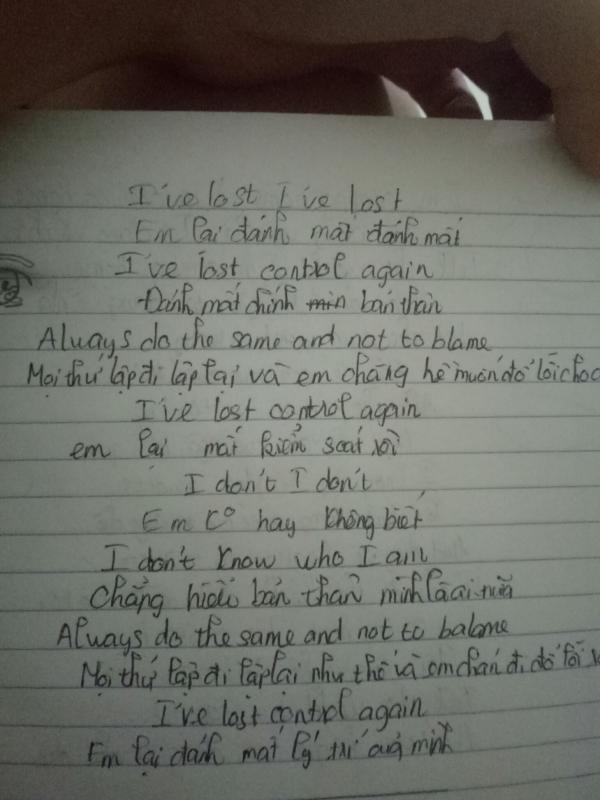 I've lost I've lost
Em lại đánh mất đánh mất
I've lost control again
Đánh mất chính bản thân
Always do the same and not to blame
Mọi thứ lập đi lập lại và em chẳng hề muốn đổ lỗi cho
I've lost control again
em lại mất kiểm soát rồi
I don't I don't
Em có hay không biết
I don't know who I am
Chẳng hiểu bản thân mình là ai nữa
Always do the same and not to balame
Mọi thứ lập đi lập lại như thế và em chán đi đổ lỗi
I've lost control again
Em lại đánh mất lý trí quả mình